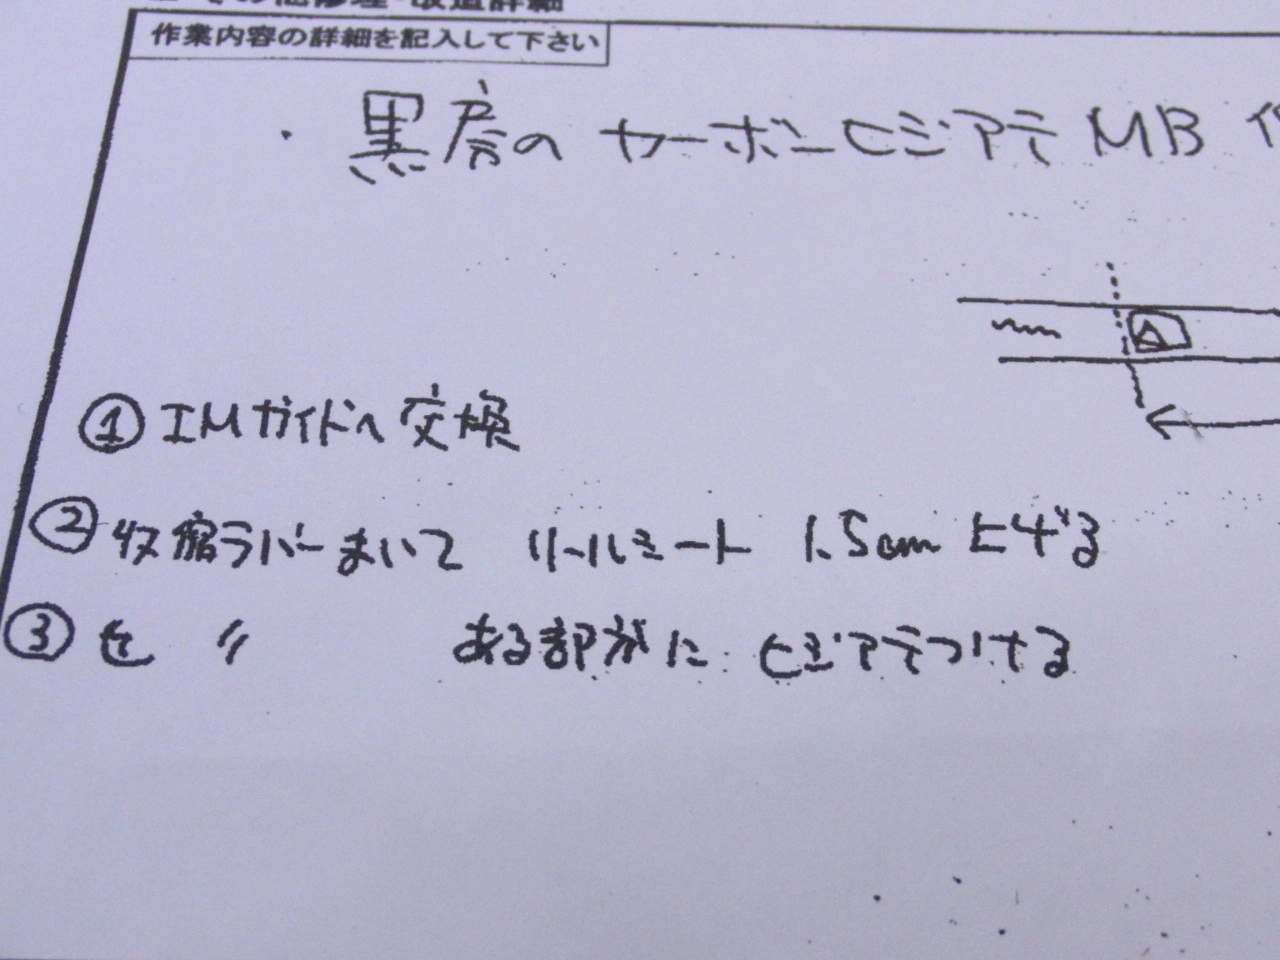 その他修理・改造詳細
作業内容の詳細を記入して下さい
・黒房の カーボンヒジアテ MB
① IMガイドへ交換
② 収縮ラバーまいて リールシート 1.5cm 上げる
③ を 〃 ある部分に ヒジアテつける